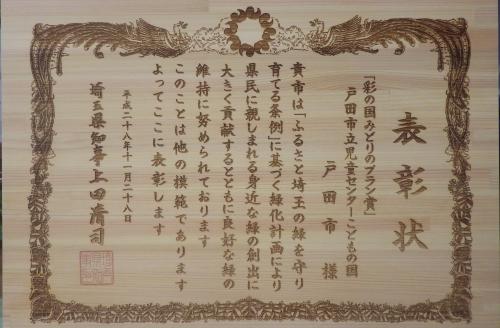 表彰状
「彩の国みどりのプラン賞」
戸田市立児童センターこどもの国
戸田市 様
貴市は「ふるさと埼玉の緑を守り
育てる条例」に基づく緑化計画により
県民に親しまれる身近な緑の創出に
大きく貢献するとともに良好な緑の
維持に努められております
このことは他の模範であります
よってここに表彰します
平成二十八年十一月二十八日
埼玉県知事 上田清司